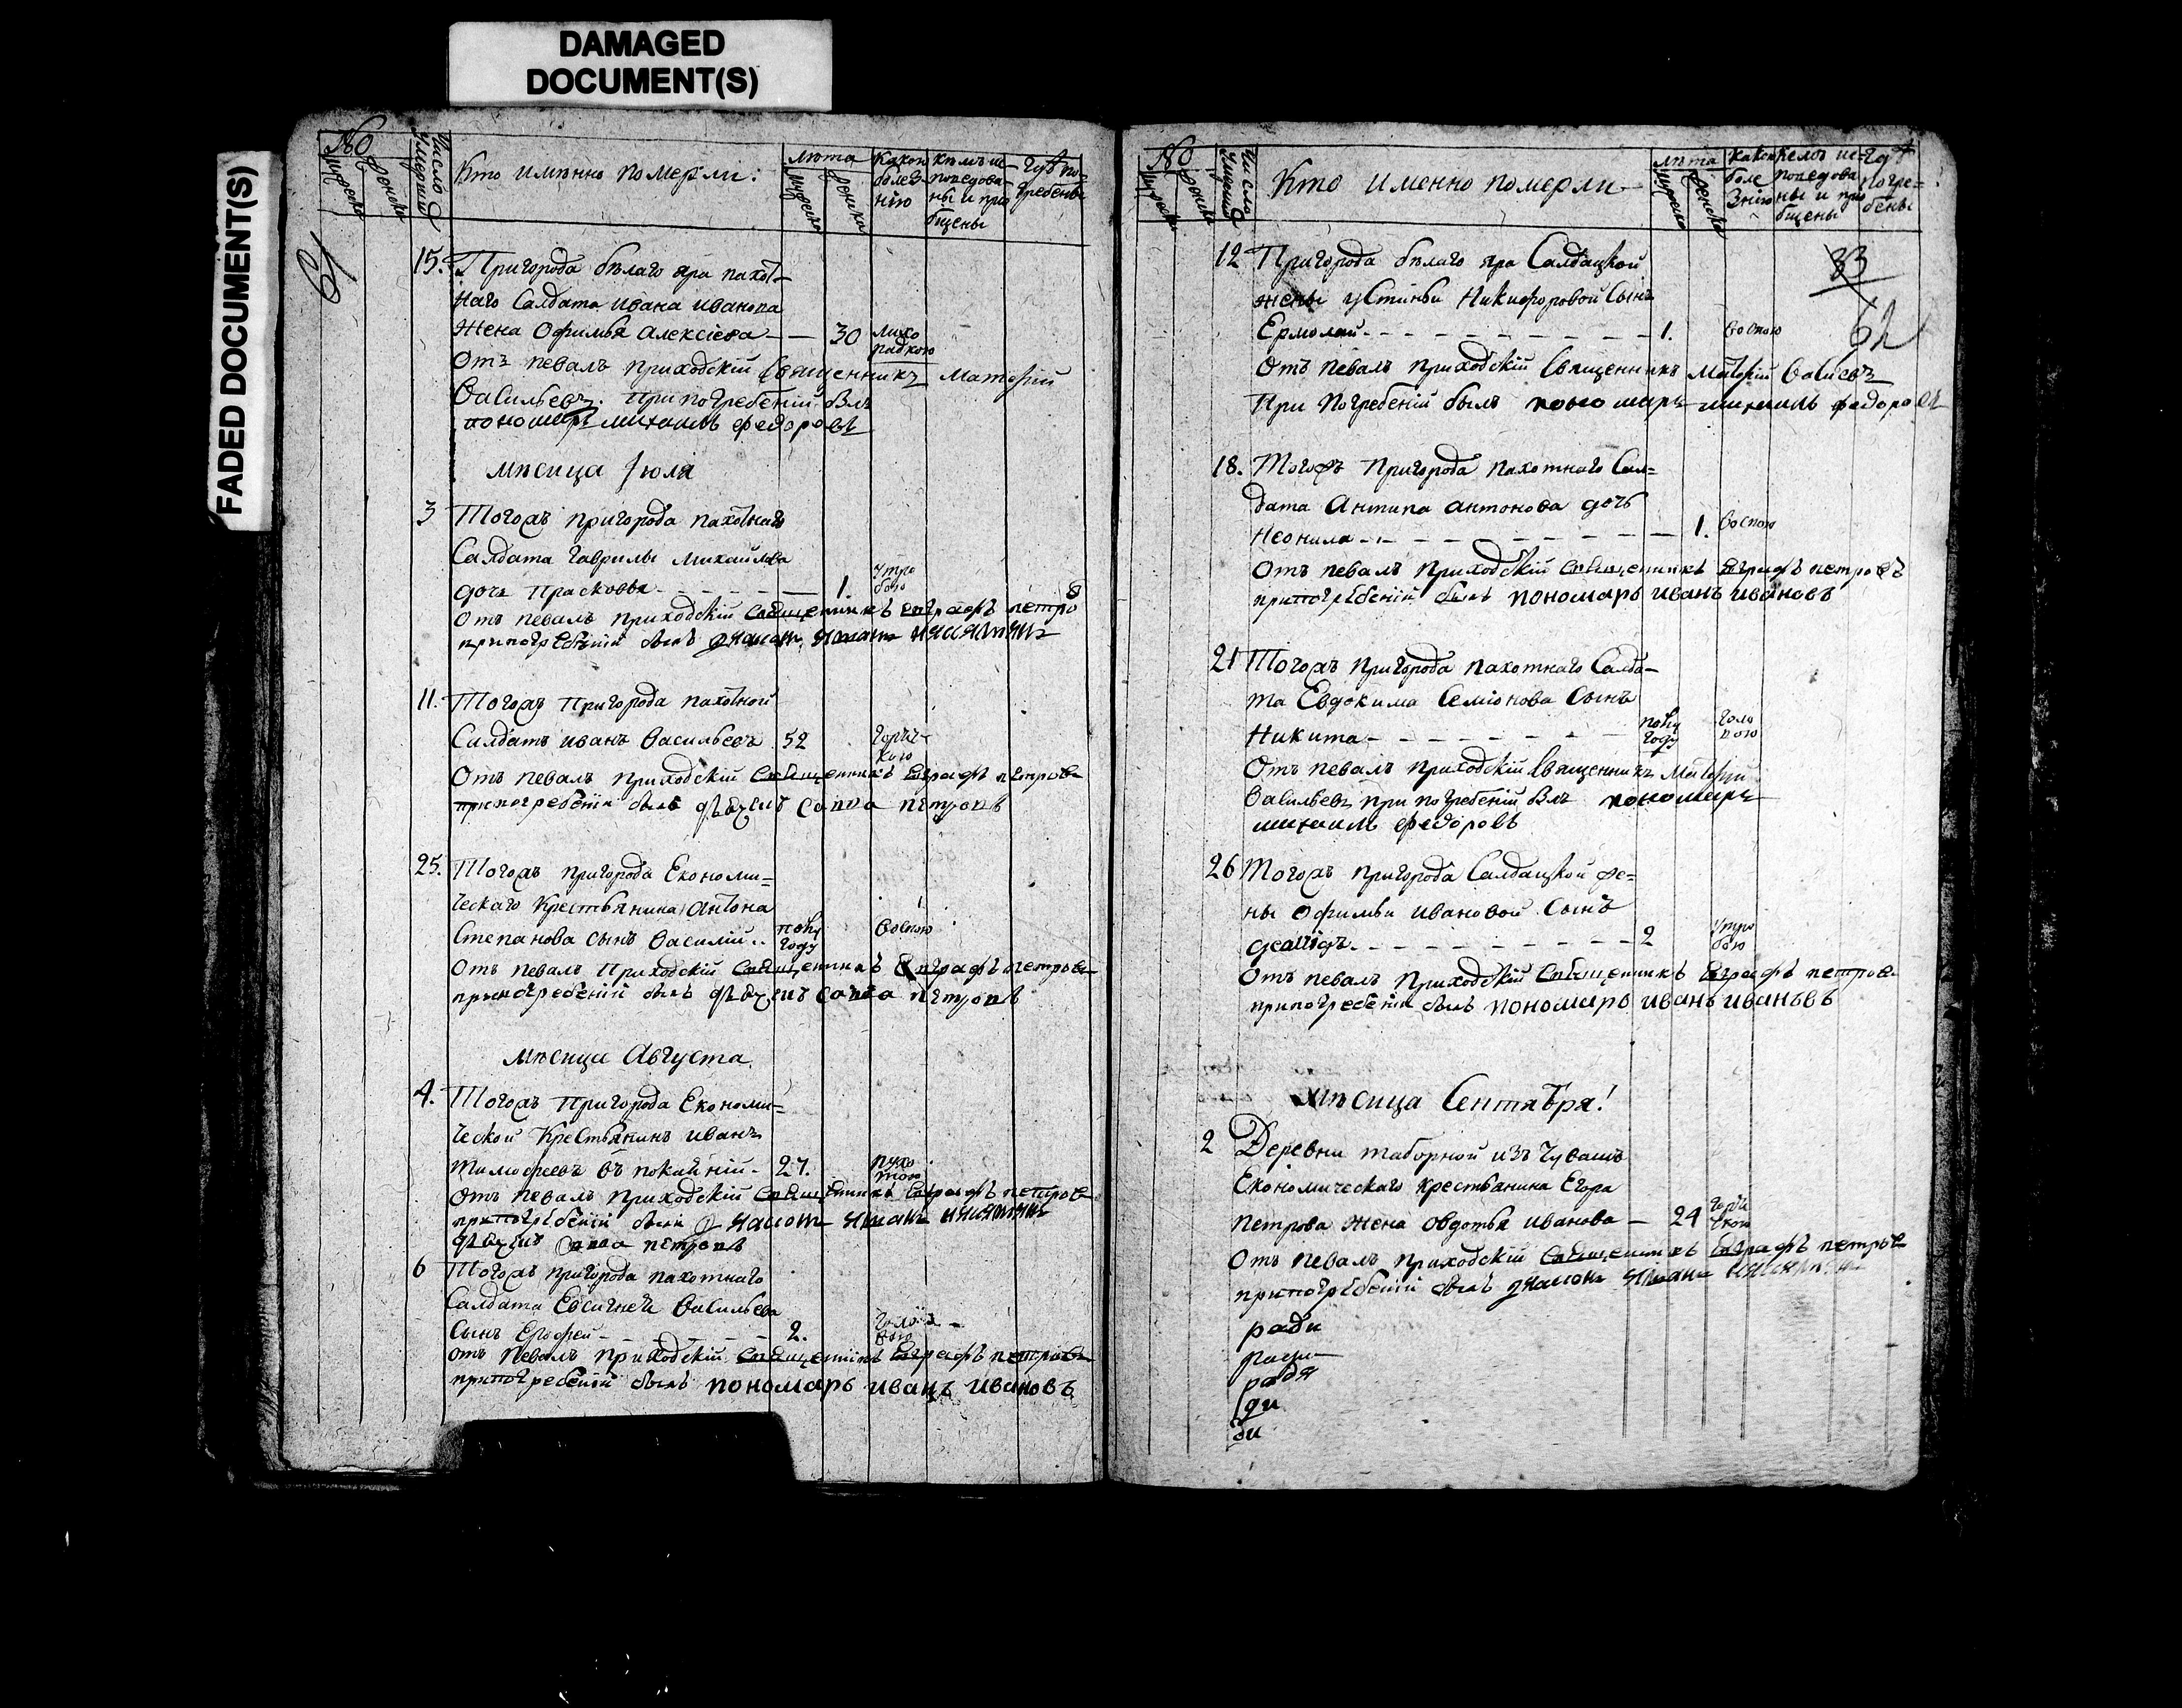 DAMAGED
DOCUMENT(S)
FADED DOCUMENT(S)
№
мужеска
женска
Число умерший
Кто имѣнно померли:
лѣта
мужеска
женска
Какою болезнію
кѣмъ исповедованы и приобщены
гдѣ погребены
15. Пригорода бѣлаго яра пахот-
наго Салдата ивана иванова
Жена Офимья алексіева — 30 лихо
радкою
Отъ певалъ приходскій Священникъ Матфій
Васильевъ. При погребеніи былъ
пономарь михаилъ федоровъ
мѣсица Іюля
3 Тогожъ пригорода пахотнаго
Салдата Гаврилы михайлова
дочь Прасковья — 1. утро
бою
Отъ певалъ приходскій священникъ евграфъ петров
при погребеніи былъ
11. Тогожъ Пригорода пахотной
Салдатъ иванъ Васильевъ 52 горяч-
кою
Отъ певалъ приходскій священникъ евграфъ петровъ
при погребеніи былъ савва петровъ
25. Тогожъ пригорода Економи=
ческаго Крестьянина антона
Степанова сынъ Василій.. полу
году Воспою
Отъ певалъ Приходскій священникъ евграфъ петровъ
при погребеніи былъ савва петровъ
мѣсица Августа
4. Тогожъ Пригорода Економи=
ческой Крестьянинъ иванъ
тимофеевъ въ покаяніи - 27.
Отъ певалъ приходскій священникъ евграфъ петровъ
при погребеніи были
савва петровъ
6 Тогожъ пригорода пахотнаго
Салдата Евсигнея Васильева
Сынъ Ерофей — 2.
отъ певалъ приходскій священникъ евграфъ петровъ
при погребеніи былъ пономарь иванъ ивановъ
№
мужеска
женска
Число умерший
Кто именно померли —
лѣта
мужеска
женска
какою болезнію
кемъ исповедованы и приобщены
гдѣ погребены
33
62
12 Пригорода бѣлаго яра Салдацкой
жены устиньи Никифоровой Сынъ
Ермолай — 1. Воспою
Отъ певалъ приходскій Священникъ Матфій Василевъ
При Погребеніи былъ пономарь михаилъ федоровъ
18. Тогожъ Пригорода пахотнаго Сал=
дата Антипа антонова дочь
Неонила — 1. Воспою
Отъ певалъ приходскій священникъ евграфъ петровъ
при погребеніи былъ пономарь иванъ ивановъ
21 Тогожъ пригорода пахотнаго Салда-
та Евдокима Семіонова Сынъ
Никита — полу
году
Отъ певалъ приходскій Священникъ Матфій
Васильевъ при погребеніи былъ пономарь
михаилъ федоровъ
26 Тогожъ пригорода Салдацкой же=
ны Офимьи ивановой Сынъ
— 2 утро
бою
Отъ певалъ приходскій священникъ евграфъ петровъ
при погребеніи былъ пономарь иванъ ивановъ
мѣсица Сентября!
2 Деревни таборной изъ Чувашъ
Економическаго крестьянина Егора
петрова жена овдотья иванова — 24 горя
чкою
Отъ певалъ приходскій священникъ евграфъ петровъ
при погребеніи былъ
ради
ради
ди